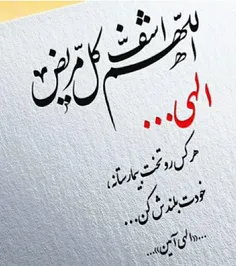 اللهم اشف کل مریض
الهی...
هر کس رو تخت بیمارستانه،
خودت بلندش کن...
...«الهی آمین»...